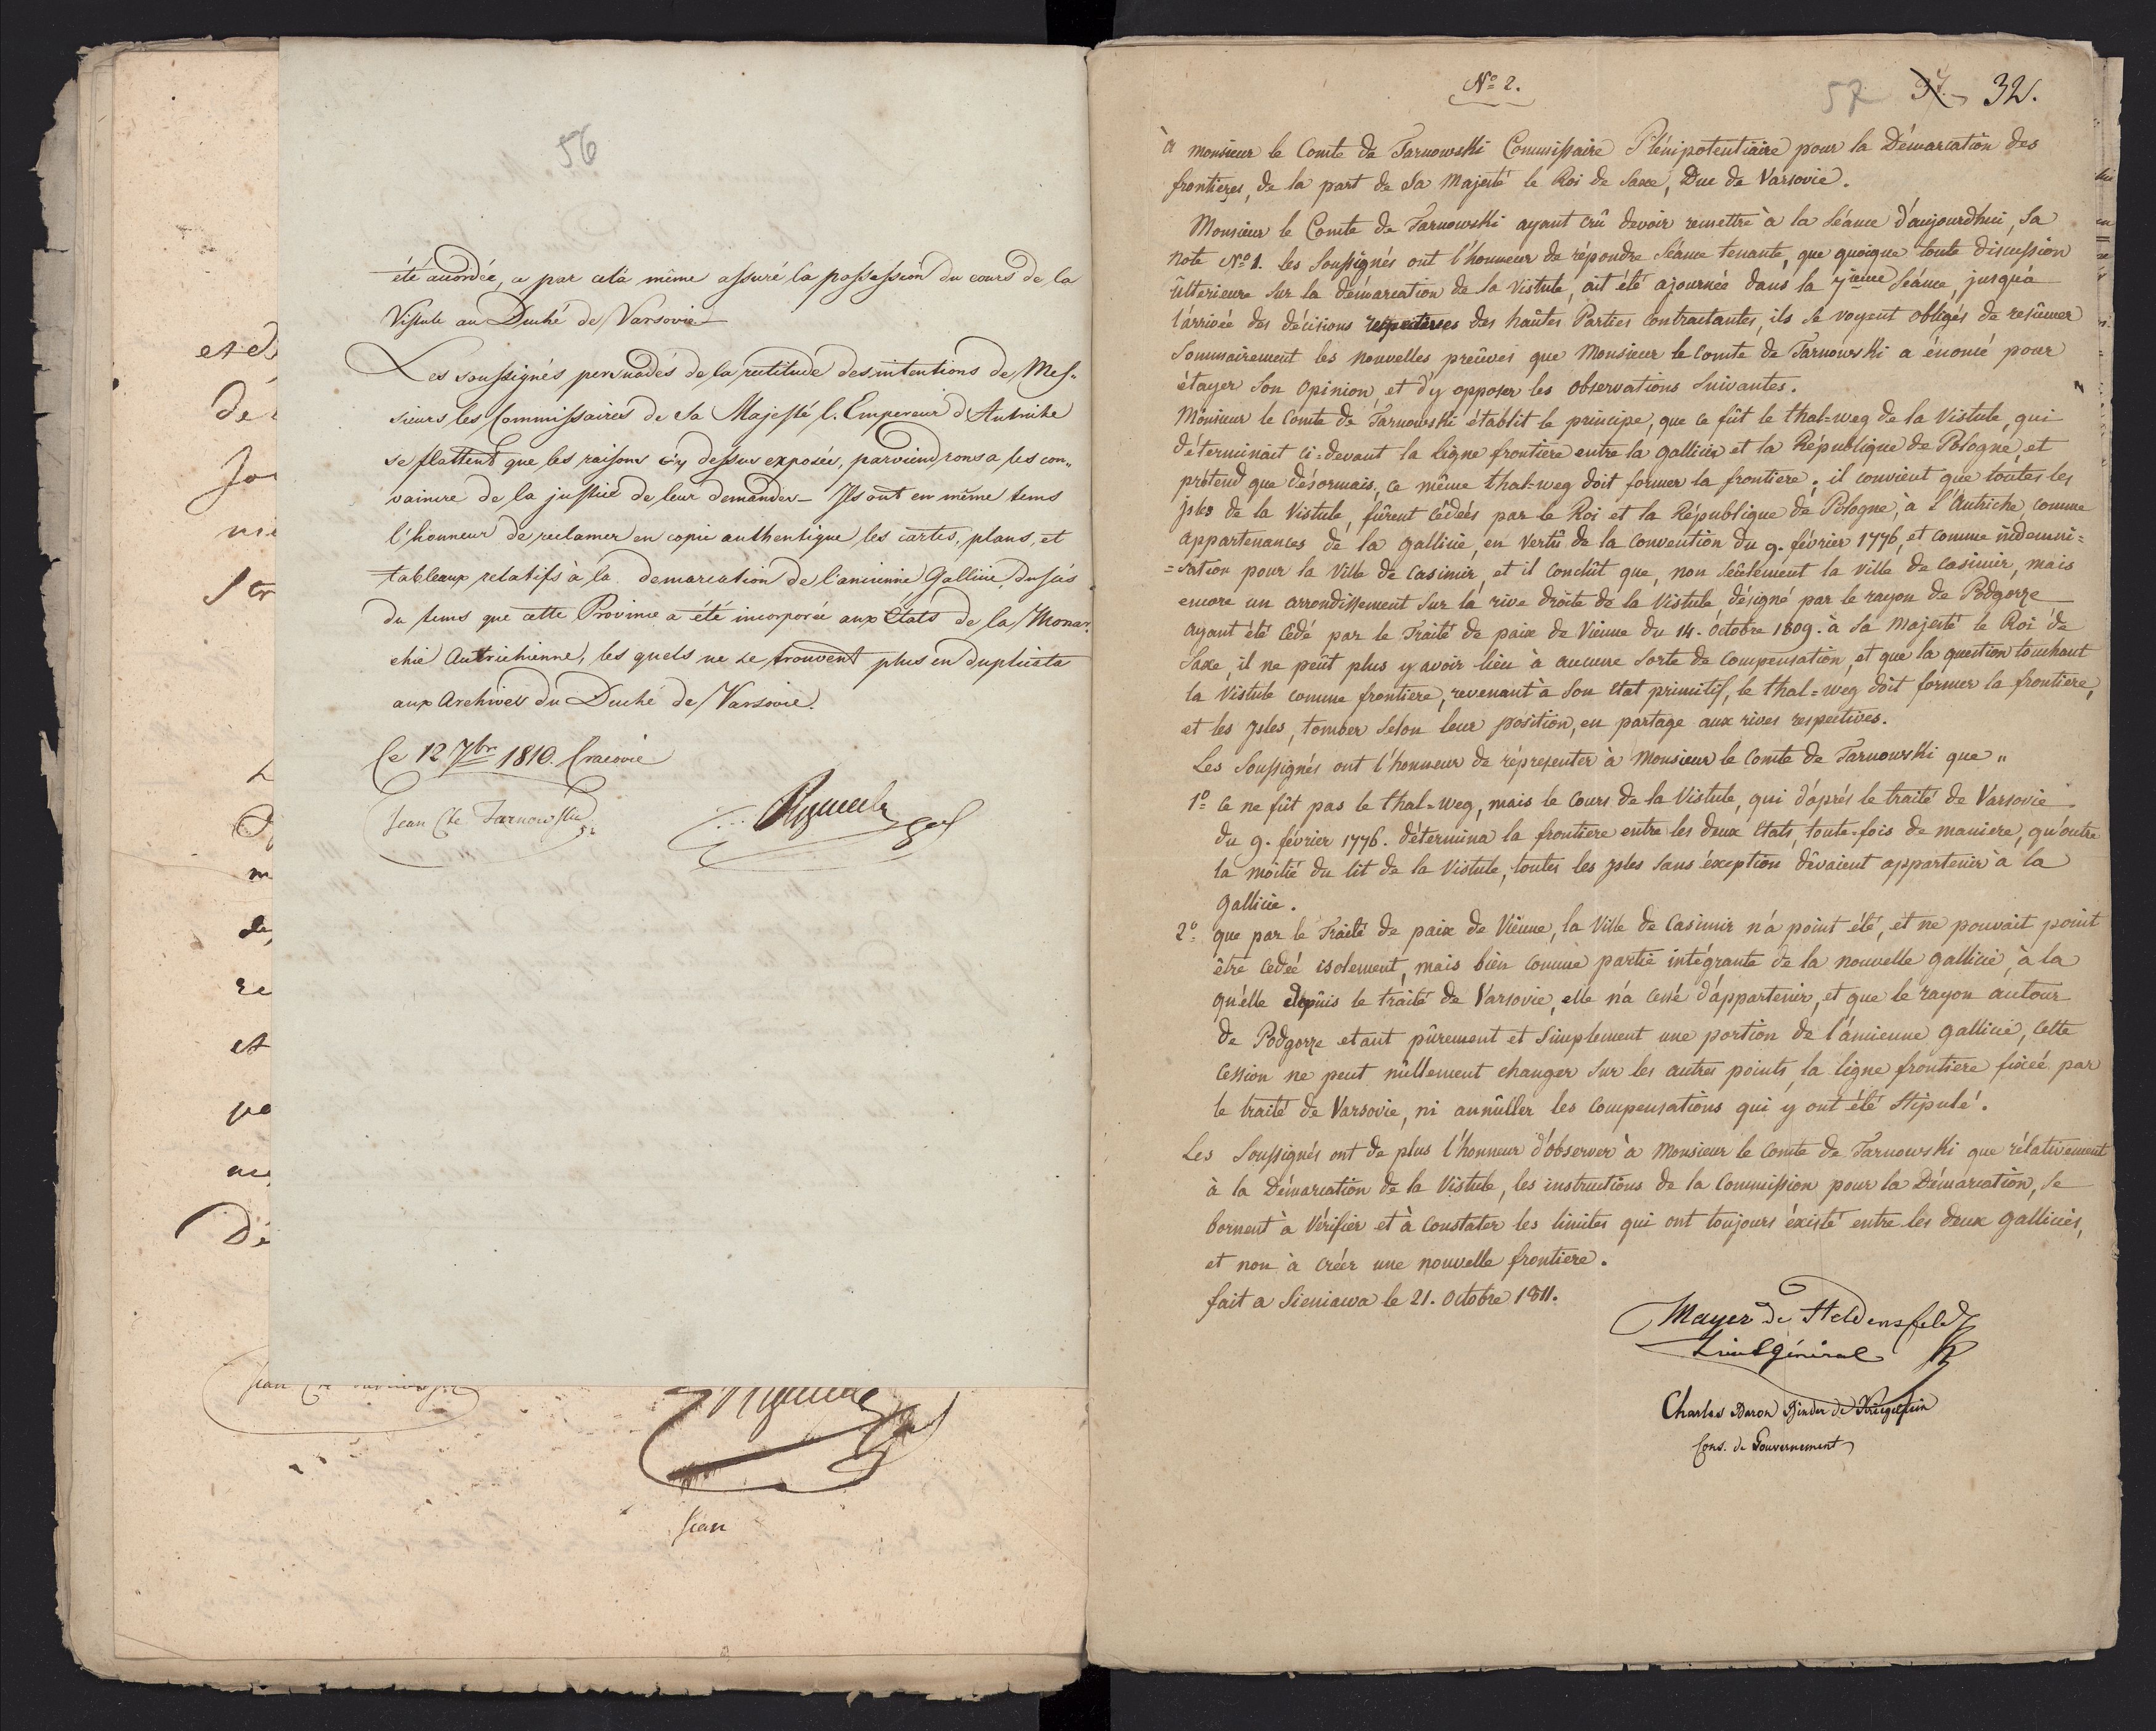 56
été accordée, a par celà même assuré la possession du cours de la
Vistule au Duché de Varsovie
Les soussignés persuadés de la rectitude des intentions de Mes-
sieurs les Commissaires de Sa Majesté l'Empereur d'Autriche
se flattent que les raisons ci dessus exposées, parviendrons a les con„
vaincre de la justice de leur demander — Ils ont en même tems
l'honneur de reclamer en copie authentique les cartes, plans, et
tableaux relatifs à la demarcation de l'ancienne Gallicie
du tems que cette Province a été incorporée aux États de la Monar-
chie Autrichienne, les quels ne se trouvent plus en duplicata
aux Archives du Duché de Varsovie.
Ce 12 7br 1810 Cracovie
Jean Cte Tarnowski
et
de
Jean
No 2.
57 37. 32.
à monsieur le Comte de Tarnowski Commissaire Plénipotentiaire pour la Démarcation des
frontieres, de la part de Sa Majesté le Roi de Saxe, Duc de Varsovie.
Monsieur le Comte de Tarnowski ayant crû devoir remettre à la Séance d'aujourdhui, Sa
note No 1. les Soussignés ont l'honneur de répondre Séance tenante, que quoique toute discussion
ulterieure Sur la démarcation de la Vistule, ait été ajournée dans la 7ieme Séance, jusqu'a
l'arrivée des décisions respectives des hautes Parties Contractantes, ils se voyent obligés de resûmer
Sommairement les nouvelles preûves que Monsieur le Comte de Tarnowski a énoncé pour
étayer Son opinion, et d'y opposer les observations Suivantes.
Monsieur le Comte de Tarnowski établit le principe, que ce fût le thal=weg de la Vistule, qui
déterminait ci-devant la ligne frontiere entre la gallicie et la République de Pologne, et
prétend que désormais, ce même thal-weg doit former la frontiere; il convient que toutes les
jsles de la Vistule, fûrent cédées par le Roi et la République de Pologne, à l'Autriche, comme
appartenances de la gallicie, en vertû de la Convention du 9. février 1776, et comme indemni=
=sation pour la Ville de Casimir, et il conclût que, non Seûlement la ville de casimir, mais
encore un arrondissement Sur la rive droite de la Vistule, désigné par le rayon de Podgorze
ayant été cedé par le Traité de paix de Vienne du 14. octobre 1809. à Sa majesté le Roi de
Saxe, il ne peût plus y avoir lieu à aucune sorte de Compensation, et que la question touchant
la Vistule comme frontiere, revenant à Son Etat primitif, le thal=weg doit former la frontiere,
et les jsles, tomber selon leur position, en partage aux rives respectives.
Les Soussignés ont l'honneur de réprésenter à Monsieur le Comte de Tarnowski que „
1o Ce ne fût pas le thal-weg, mais le Cours de la Vistule, qui d'aprés le traité de Varsovie
du 9. février 1776. détermina la frontiere entre les deux Etats, toute-fois de maniere, qu'outre
la moitié du lit de la Vistule, toutes les jsles sans éxeption dêvaient appartenir à la
gallicie.
2o que par le Traité de paix de Vienne, la Ville de Casimir n'á point été, et ne pouvait point
être cedée isolement, mais bien comme partie intégrante de la nouvelle gallicie, à la
qu'elle depûis le traité de Varsovie, elle n'a cessé d'appartenir, et que le rayon autour
de Podgorze etant pûrement et simplement une portion de l'ancienne gallicie, cette
Cession ne peut nûllement changer Sur les autres points, la ligne frontiere fixée par
le traité de Varsovie, ni annûller les Compensations qui y ont été stipulé.
Les Soussignés ont de plus l'honneur d'observer à Monsieur le Comte de Tarnowski que rélativement
à la Démarcation de la Vistule, les instructions de la Commission pour la Démarcation, Se
bornent à Vérifier et à Constater les limites qui ont toujours éxisté entre les deux gallicies,
et non à créer une nouvelle frontiere.
fait a Sieniawa le 21. octobre 1811.
Mayer de Heldensfeld
Lieut général
Charles Baron Binder de Kriegelstein
Cons. de Gouvernement